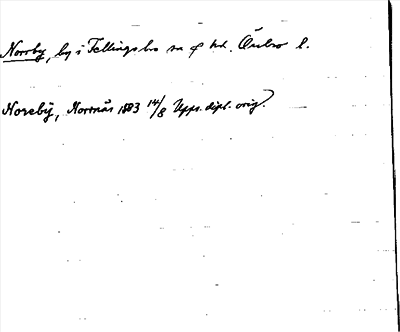 Norrby, by i Fellingsbro sn o hd. Örebro l.
Noreby, Norrnäs 1883 14/8 Upps. dipl. orig.